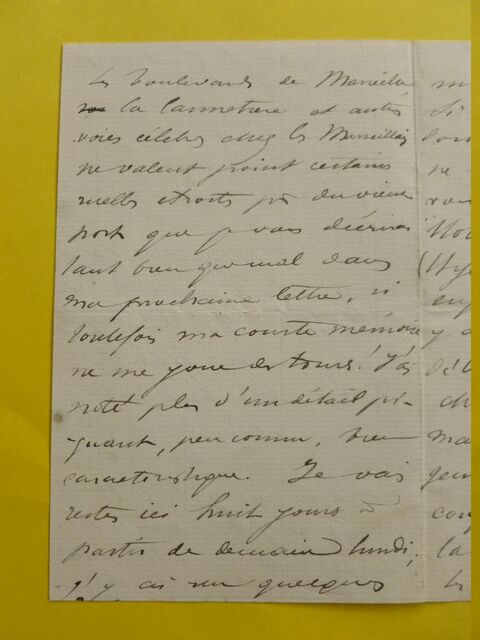 Les boulevards de Marseille
la Cannebière et autres
voies célèbres chez les Marseillais
ne valent point certaines
ruelles étroites près du vieux
port que je vous décrirai
tant bien que mal dans
ma prochaine lettre, si
toutefois ma courte mémoire
ne me joue des tours! J'ai
noté plus d'un détail pi-
quant, peu commun, bien
caractéristique. Je vais
rester ici huit jours à
partir de demain lundi;
j'y ai vu quelques